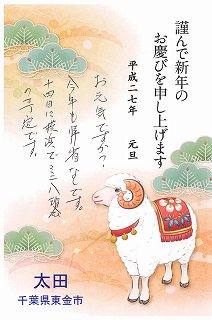 謹んで新年の
お慶びを申し上げます
平成二七年　元旦
お元気ですか？
今年も帰省なしです。
十四日に横浜でミニ八聴
の予定です。
太田
千葉県東金市